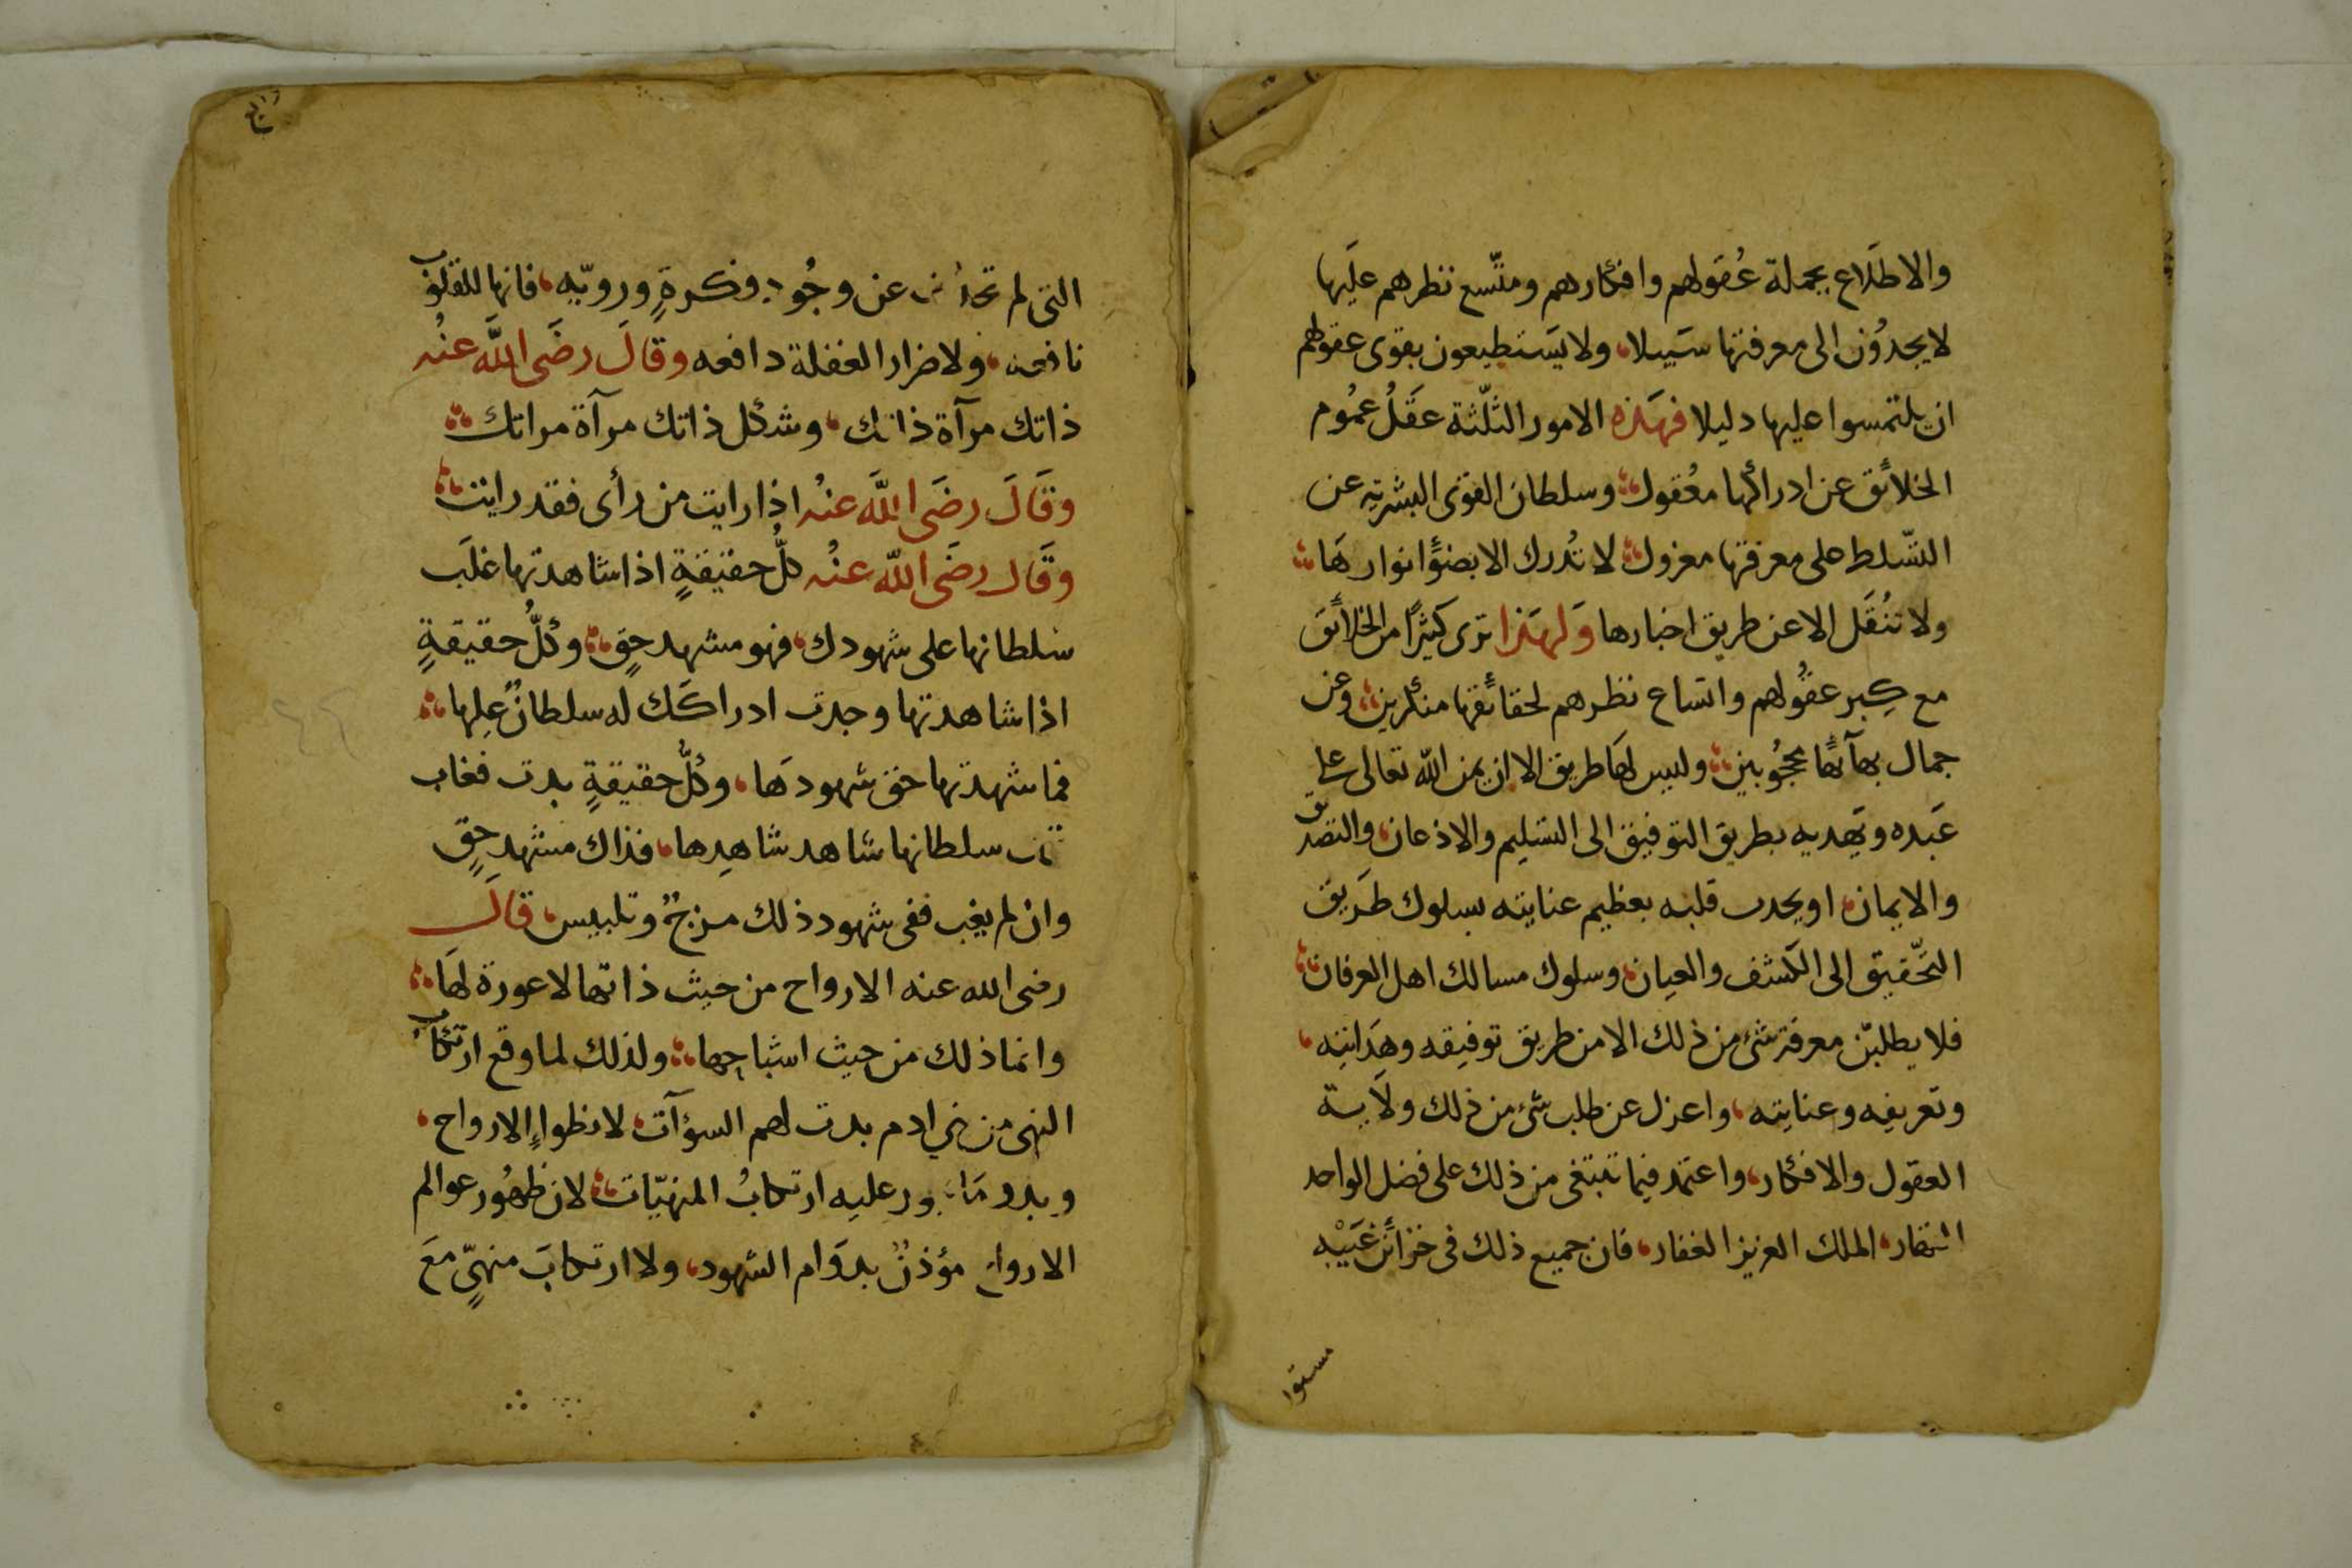 والاطلاع بجملة عُقولهم وافكارهم ومتّسع نظرهم علَيها
لا يجدوُن الى معرفتها سَبيلا، ولا يَستطيعون بقوى عقولهم
ان يلتمسوا عليها دليلا فهَذه الامور الثلّثة عقَلُ عمُوم
الخلائق عن ادراكها معُقول، وسلطان القوى البشريّه عن
التسّلط على معرفتها معزول، لا تُدرك الا بضوء انوارهَا
ولا تنُقَل الا عن طريق اخبارها وَلهَذا ترى كثيرًا من الخلائقَ
مع كِبر عقُولهم واتساع نظرهم لحقائقها منكرين، وعن
جمال بهآئها محجُوبين، وليس لهَا طريق الا ان يمن الله تعالى على
عَبده ويَهديه بطريق التوفيق الى التسّليم والاذعان، والتصديق
والايمان، او يجذب قلبه بعظيم عنايته بسلوك طَريق
التحّقيق الى الكشف والعيان، وسلوك مسالك اهل العرفان،
فلا يطلبّن معرفة شئ من ذلك الا من طريق توفيقه وهِدَايته،
وتعريفه وعنايته، واعزل عن طلب شئ من ذلك ولَاية
العقول والافكار، واعتمد فيما تبتغى من ذلك على فضل الواحد
القهار، الملك العزيز الغفار، فان جميع ذلك فى خزائن غَيْبه
مستوا
رابع
التى لم تحدُث عن وجُود وفكرةٍ ورويّهٍ، فانها للقلوب
نافعه، ولاضرار الغفلة دافعه وقالَ رضَى اللَّه عنْه
ذاتك مرآة ذاتك، وشكل ذاتك مرآة مراتك
وقَالَ رضَى اللَّه عنْه اذا رايت من رأى فقد رايت
وقَال رضَى اللَّه عنْه كلُّ حقيقةٍ اذا شاهدتها غلَب
سلطانها على شهودك، فهو مشهد حقٍ، وكلُّ حقيقةٍ
اذا شاهدتها وجدت ادراكَك له سلطانٌ عليها،
فما شهدتها حق شهودهَا، وكلُّ حقيقةٍ بدت فغاب
سلطانها شاهد شاهِدها، فذاك مشهد حقٍ
وان لم يغب ففى شهود ذلك مزجٌ وتلبيس، قالَ
رضى الله عنه الارواح من حيث ذاتها لا عورة لهَا
وانما ذلك من حيث اشباحها، ولذلك لما وقع ارتكاب
النهى من بنى ادم بدت لهم السؤآت، لانطواء الارواح،
وبدو عليه ارتكابُ المنهيّات، لان ظهُور عوالم
الارواح مؤذنٌ بدوَام الشهود، ولا ارتكابَ منهيٍّ معَ